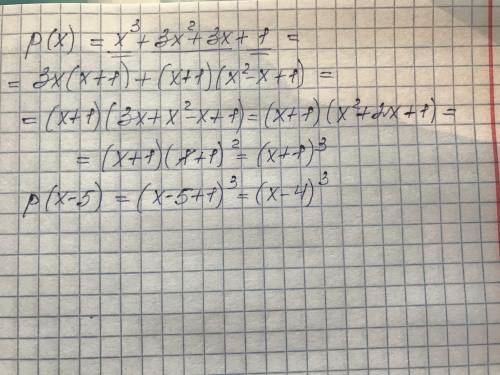 p(x) = x³ + 3x² + 3x + 1 =
= 3x(x+1) + (x+1)(x²-x+1) =
= (x+1)(3x+x²-x+1) = (x+1)(x²+2x+1) =
= (x+1)(x+1)² = (x+1)³
p(x-5) = (x-5+1)³ = (x-4)³